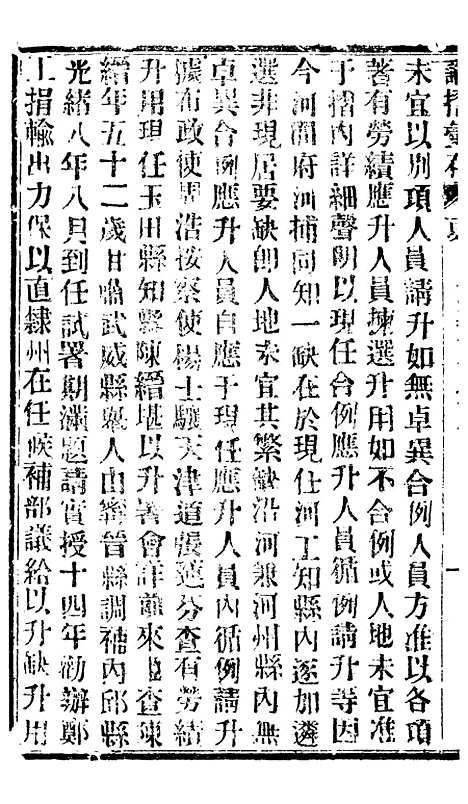 諭摺彙存
未宜以別項人員請升如無卓異合例人員方准以各項
著有勞績應升人員揀選升用如不合例或人地未宜准
于摺內詳細聲明以現任合例應升人員循例請升等因
今河間府河捕同知一缺在於現任河工知縣內逐加遴
選非現居要缺卽人地未宜其繁缺沿河兼河州縣內無
卓異合例應升人員自應于現任應升人員內循例請升
據布政使周浩按察使楊士驤天津道張蓮芬查有勞績
升用現任玉田縣知縣陳繒堪以升署會詳前來臣查陳
繒年五十二歲甘肅武威縣舉人由寧晉縣調補內邱縣
光緒八年八月到任試署期滿題請實授十四年勸辦鄭
工捐輸出力保以直隸州在任候補部議給以升缺升用